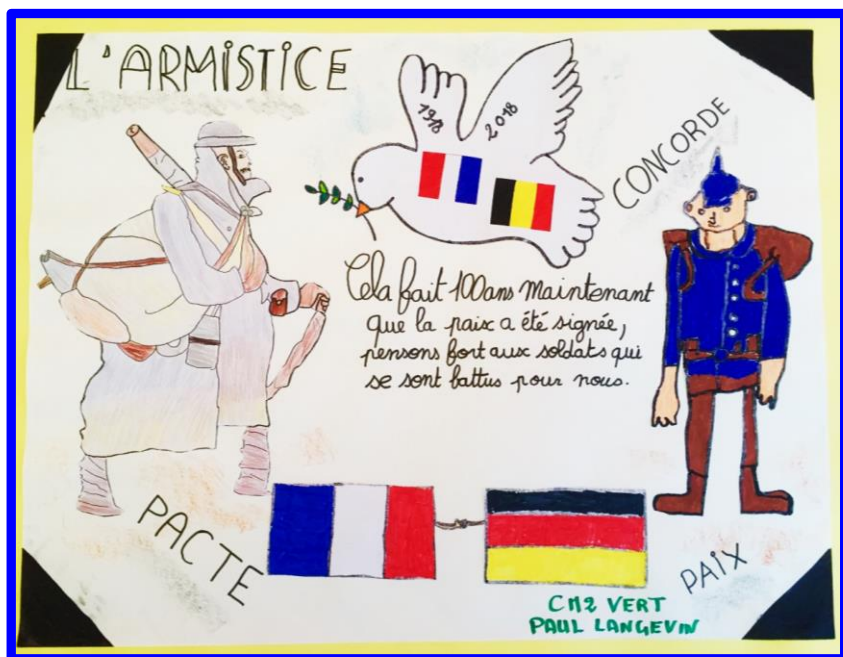 L'ARMISTICE
1918
2018
CONCORDE
Cela fait 100 ans maintenant
que la paix a été signée,
pensons fort aux soldats qui
se sont battus pour nous.
PACTE
PAIX
CM2 VERT
PAUL LANGEVIN